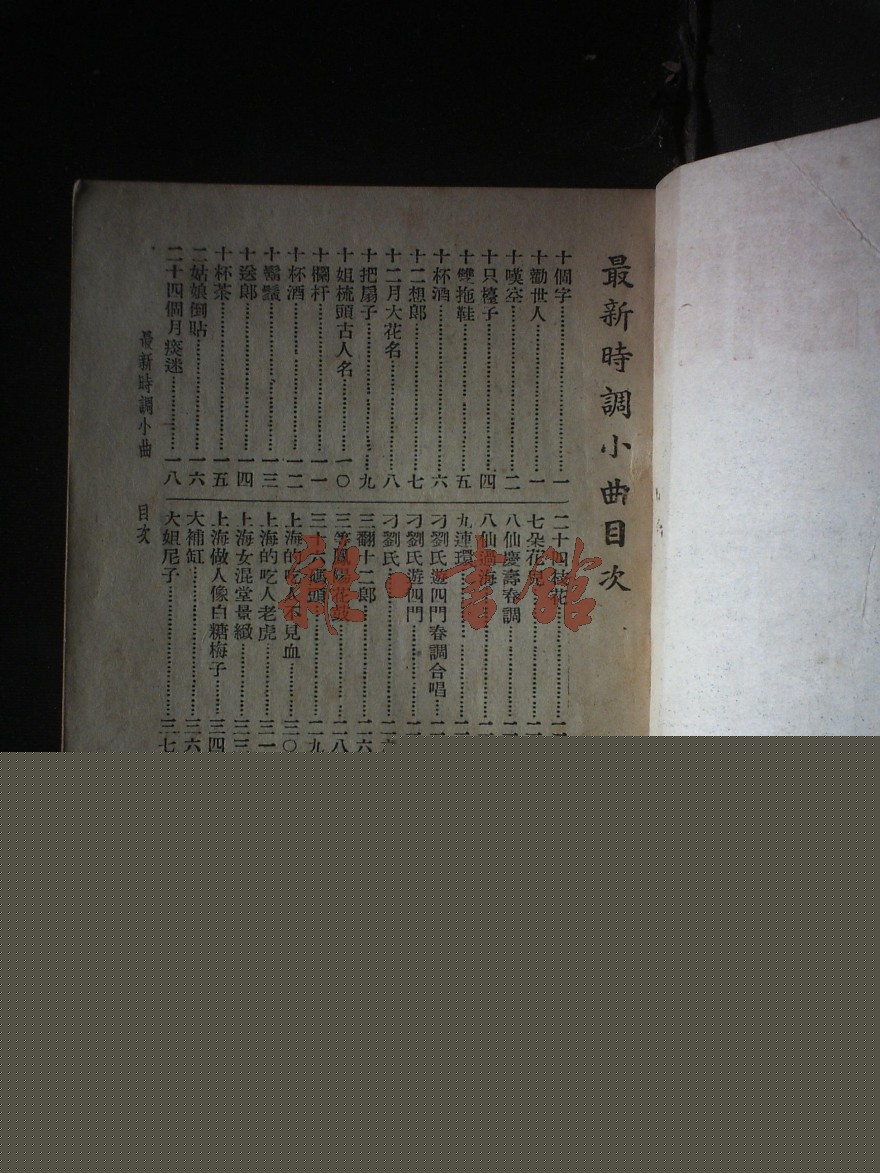 最新時調小曲目次
十個字……一
十勸世人……一
十嘆空……二
十只檯子……四
十雙拖鞋……五
十杯酒……六
十二想郎……七
十二月大花名……八
十把扇子……九
十姐梳頭古人名……一〇
十欄杆……一一
十杯酒……一二
十鬍鬚……一三
十送郎……一四
十杯茶……一五
二姑娘倒貼……一六
二十四個月痰迷……一八
二十四枝花……
七朵花兒……
八仙慶壽春調……
八仙過海……
九連環……
刁劉氏遊四門春調合唱……
刁劉氏遊四門……
刁劉氏……
三翻十二郎……二六
三等鳳陽花鼓……二八
三十六碼頭……二九
上海的吃人不見血……三〇
上海的吃人老虎……三一
上海女混堂景緻……三三
上海做人像白糖梅子……三四
大補缸……三六
大姐尼子……三七
最新時調小曲 目次
雜·書館